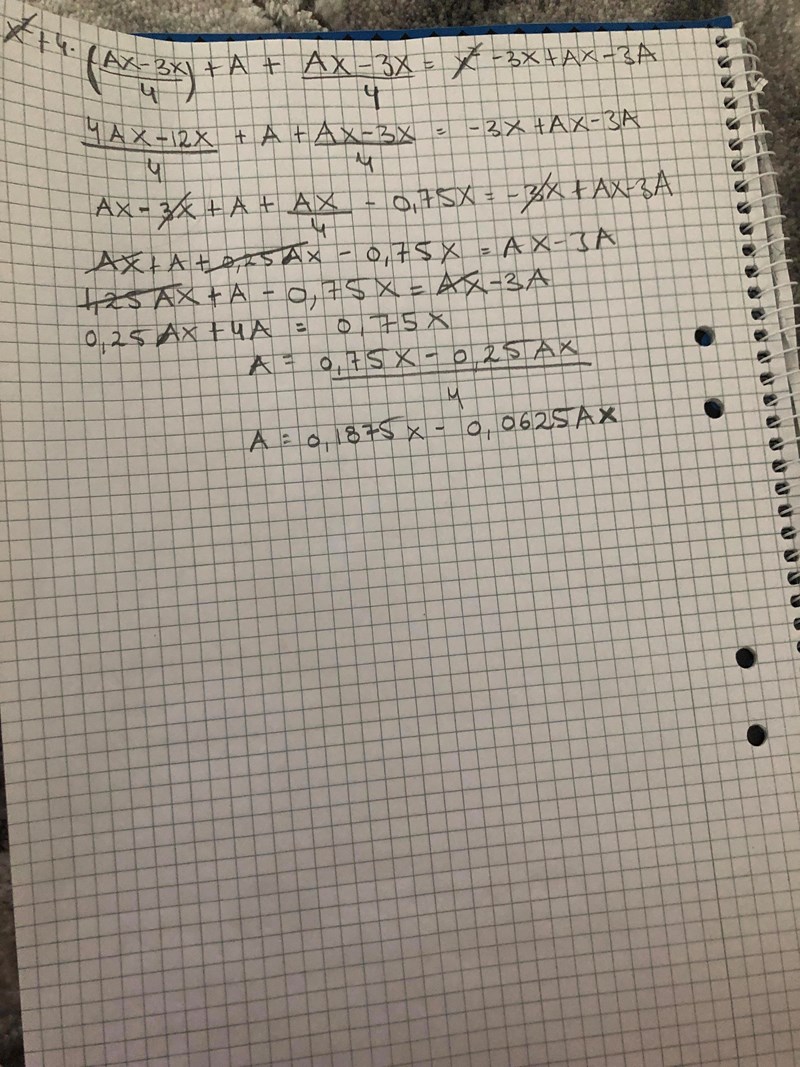 x² + 4·(Ax-3x/4) + A + Ax-3x/4 = x² -3x+Ax-3A
4Ax-12x/4 + A + Ax-3x/4 = -3x+Ax-3A
Ax-3x + A + Ax/4 - 0,75x = -3x + Ax-3A
Ax+A+0,25Ax - 0,75x = Ax-3A
1,25Ax + A - 0,75x = Ax-3A
0,25Ax+4A = 0,75x
A = 0,75x - 0,25Ax/4
A = 0,1875x - 0,0625Ax